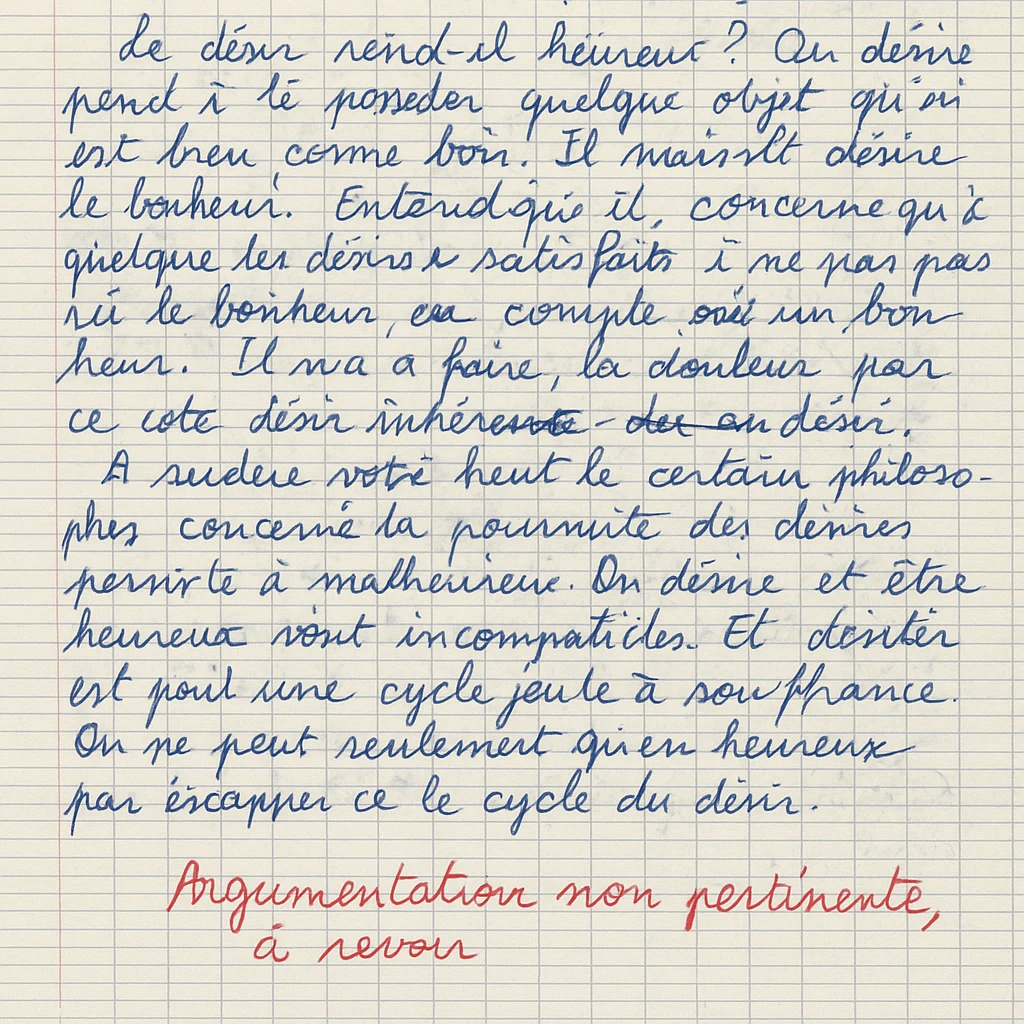 Le désir rend-il heureux ? On désire
pend à té posseder quelque objet qu'on
est breu comme bon. Il maisslt désire
le bonheur. Entend que il, concerne qu'à
quelque les désirs satisfaits i ne pas pas
le bonheur, compte un bon
heur. Il n'a a faire, la douleur par
ce cote désir inhérente - du au désir.
A sudere votè heut le certain philoso-
phes concerné la pournuite des désires
persirte à malheureux. On désire et être
heureux vont incompaticles. Et désitér
est poul une cycle joule à souffrance.
On ne peut seulement qu'en heureux
par éscapper ce le cycle du désir.
Argumentation non pertinente,
à revoir